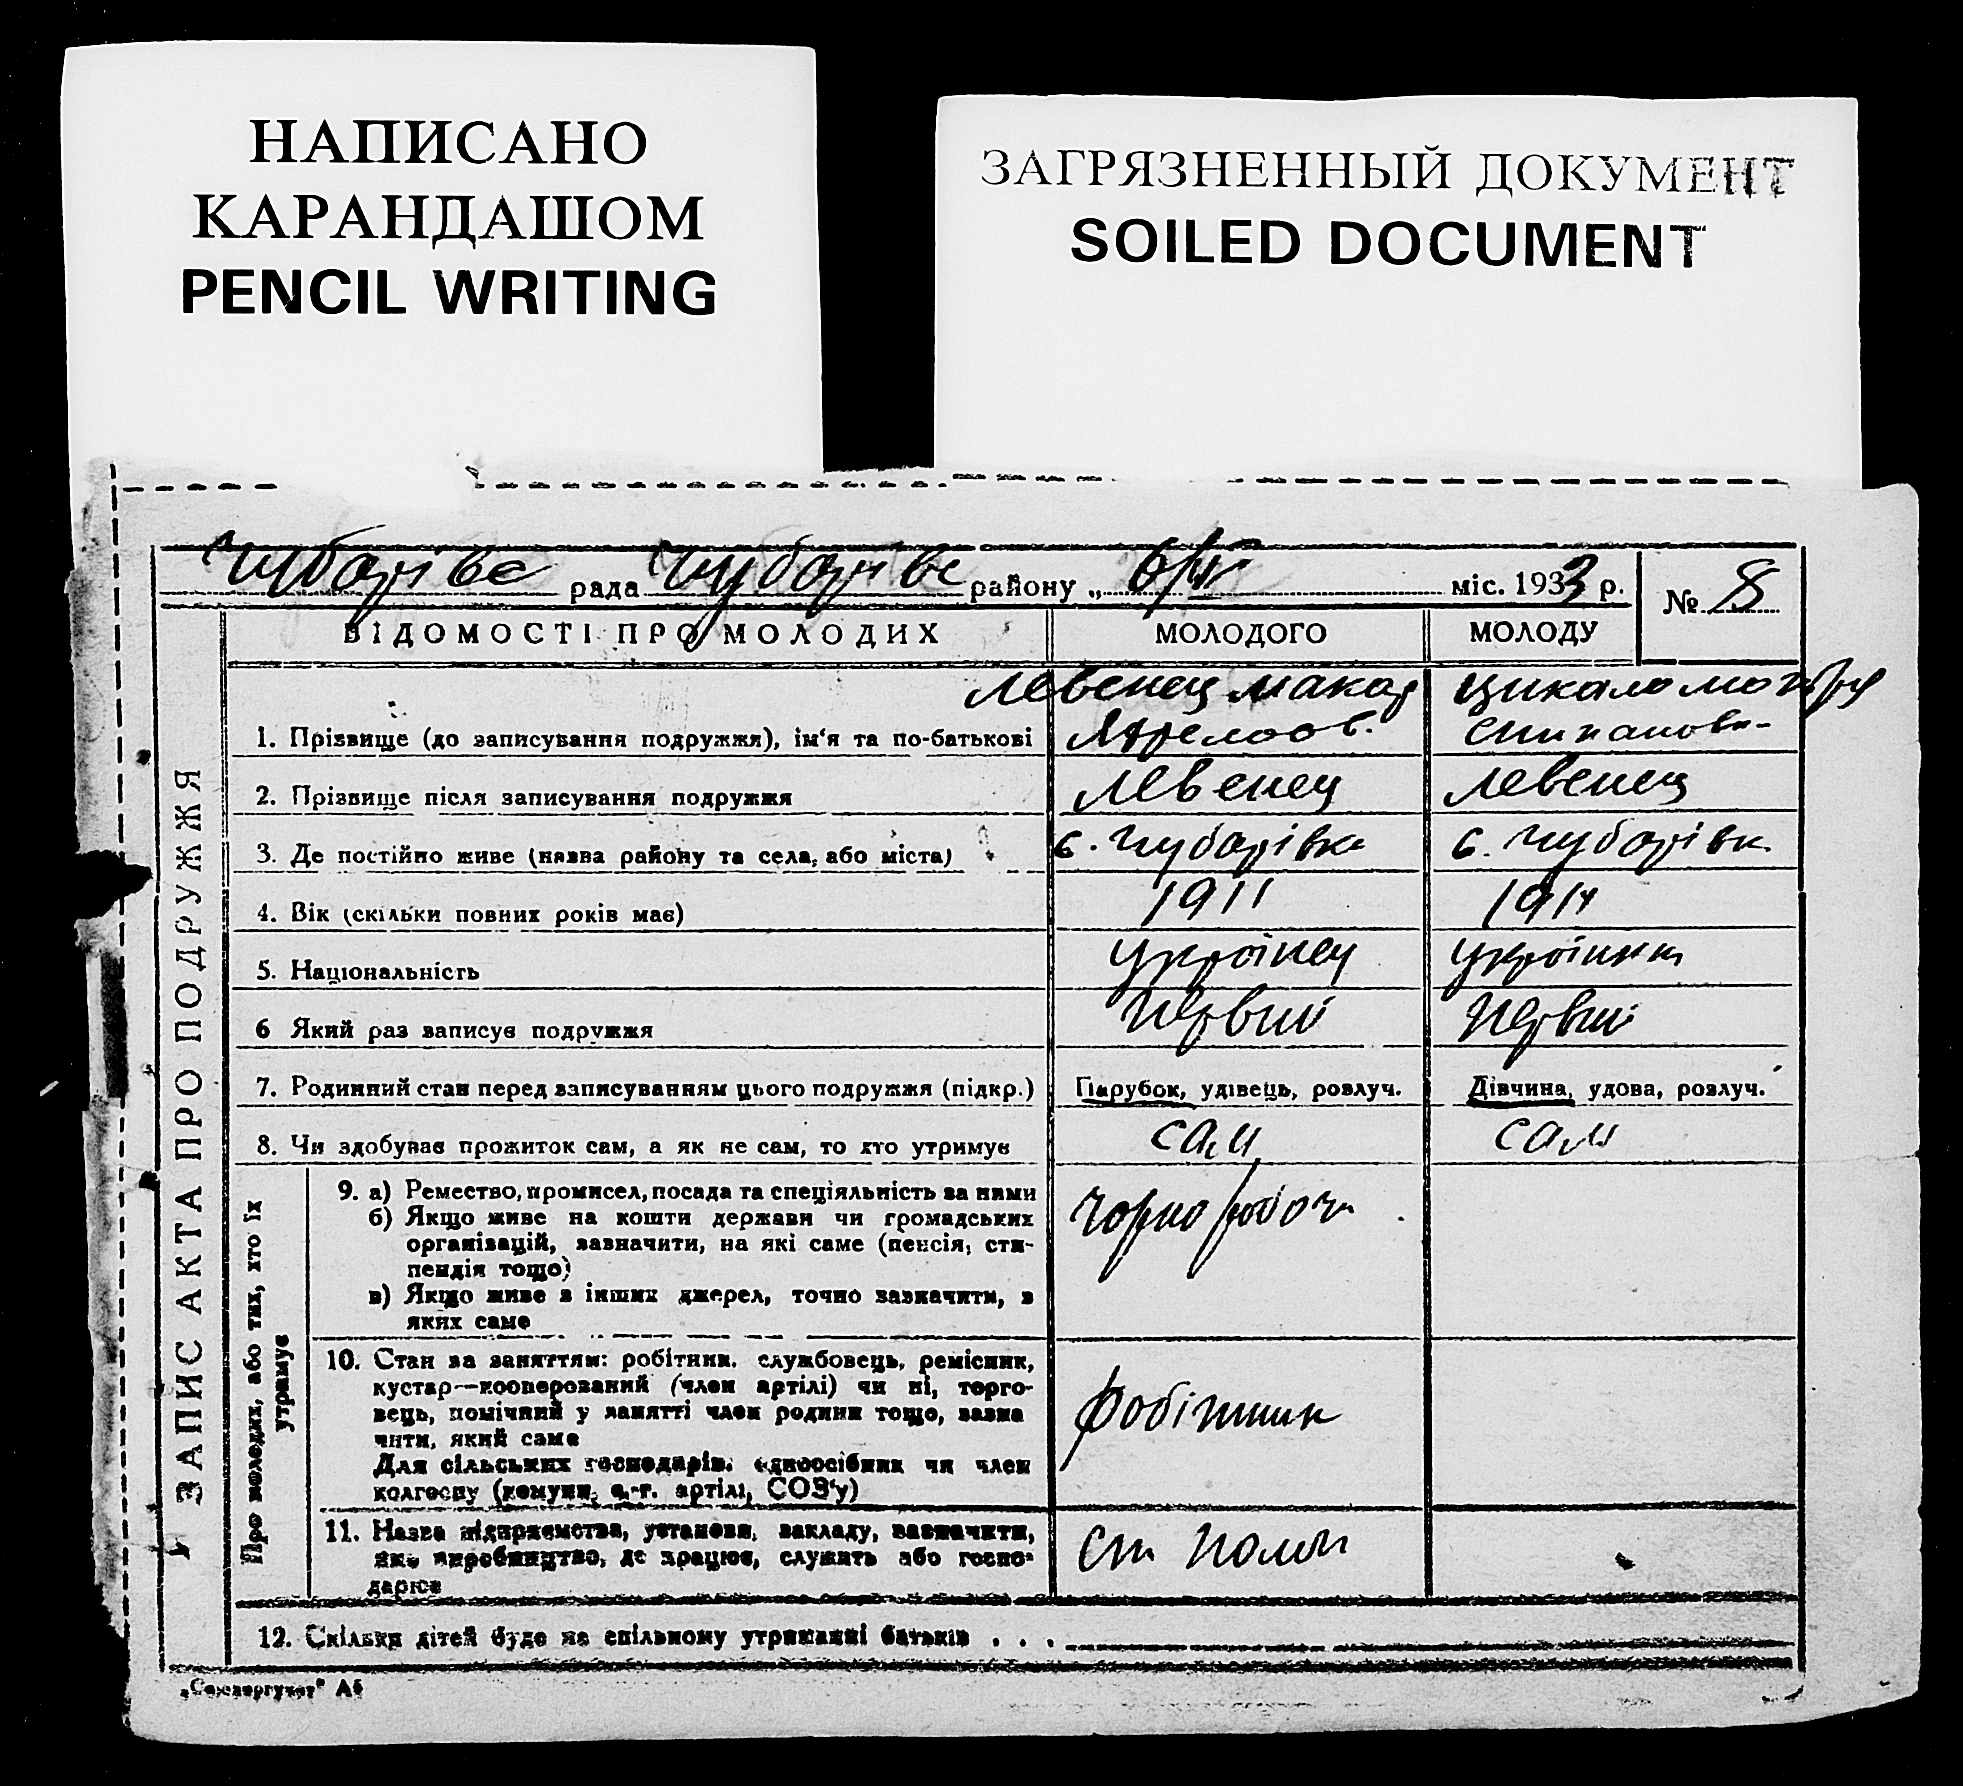 НАПИСАНО
КАРАНДАШОМ
PENCIL WRITING
ЗАГРЯЗНЕННЫЙ ДОКУМЕНТ
SOILED DOCUMENT
Чубарівс рада Чубарівс району „ 6/ міс. 1933 р. № 8
ВІДОМОСТІ ПРО МОЛОДИХ МОЛОДОГО МОЛОДУ
Левенец Макар Цикало
1. Прізвище (до записування подружжя), ім'я та по-батькові
2. Прізвище після записування подружжя Левенец Левенец
3. Де постійно живе (назва району та села, або міста) с. Чубарівка с. Чубарівк
4. Вік (скільки повних років має) 1911 1914
5. Національність Українец Українка
6 Який раз записує подружжя Первий Первий
7. Родинний стан перед записуванням цього подружжя (підкр.) Парубок, удівець, розлуч. Дівчина, удова, розлуч.
8. Чи здобуває прожиток сам, а як не сам, то хто утримує сам сам
ЗАПИС АКТА ПРО ПОДРУЖЖЯ
Про молодих, або тих, хто їх
утримує
9. а) Ремество, промисел, посада та спеціяльність за ними
б) Якщо живе на кошти держави чи громадських
організацій, зазначити, на які саме (пенсія, сти-
пендія тощо)
в) Якщо живе з інших джерел, точно зазначити, з
яких саме
Чорноробоч
10. Стан за заняттям: робітник, службовець, ремісник,
кустар—кооперований (член артілі) чи ні, торго-
вець, помічний у занятті член родини тощо, зазна
чити, який саме
Для сільських господарів: одноосібник чи член
колгоспу (комуни, с.-г. артілі, СОЗ'у)
Робітник
11. Назва підприємства, установи, закладу, зазначити,
яке виробництво, де працює, служить або госпо-
дарює
ст
12. Скільки дітей буде на спільному утриманні батьків . . .